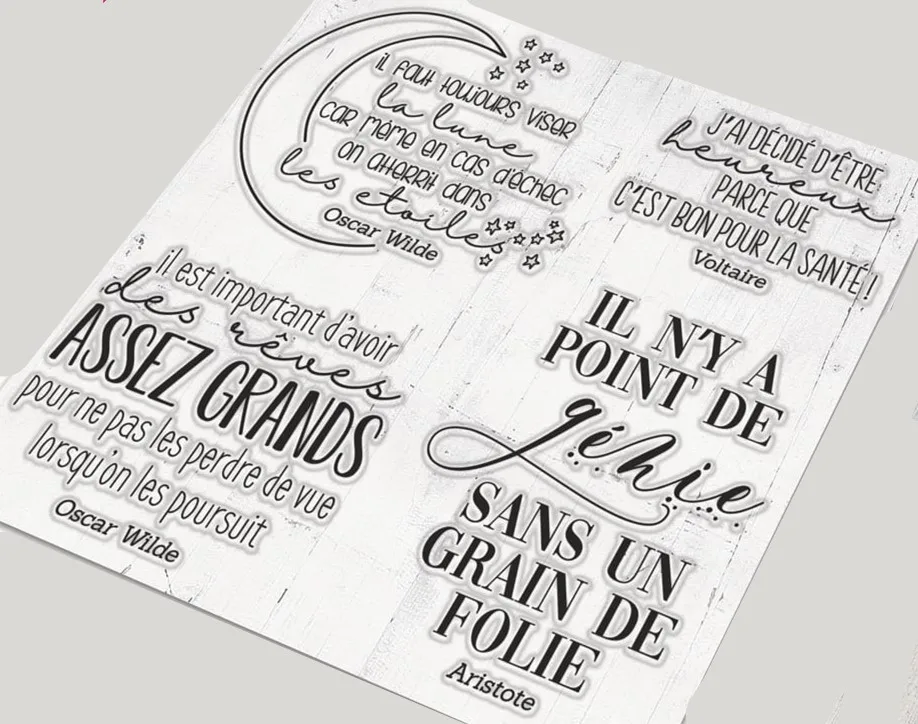 il faut toujours viser
la lune
car même en cas d'échec
on atterrit dans
les etoiles
Oscar Wilde
J'AI DÉCIDÉ D'ÊTRE
heureux
PARCE QUE
C'EST BON POUR LA SANTÉ !
Voltaire
il est important d'avoir
des rêves
ASSEZ GRANDS
pour ne pas les perdre de vue
lorsqu'on les poursuit
Oscar Wilde
IL N'Y A
POINT DE
génie
SANS UN
GRAIN DE
FOLIE
Aristote